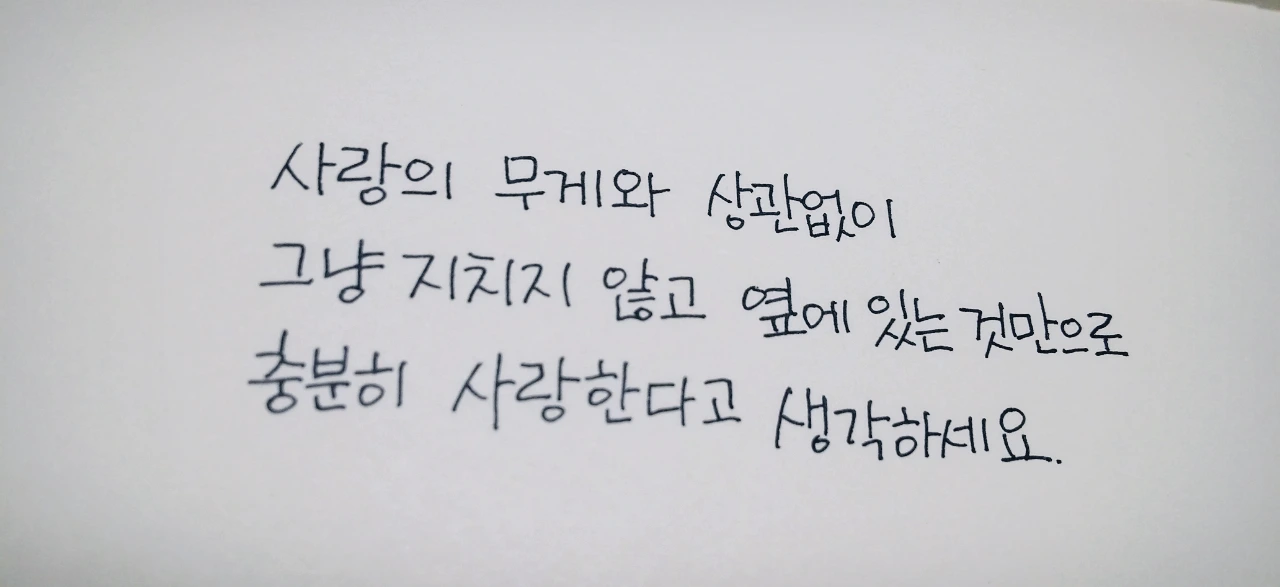 사랑의 무게와 상관없이
그냥 지치지 않고 옆에 있는 것만으로
충분히 사랑한다고 생각하세요.